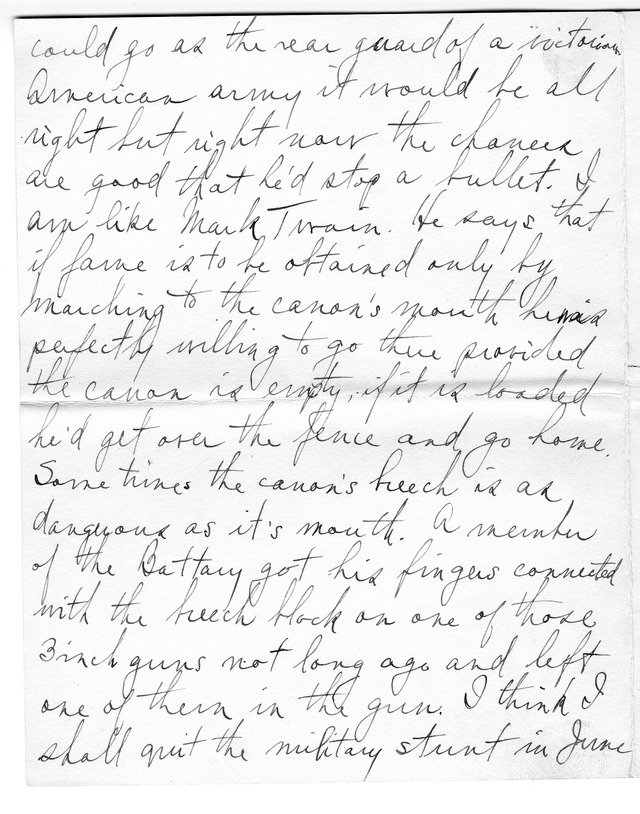 could go as the rear guard of a victorious
American army it would be all
right but right now the chances
are good that he'd stop a bullet. I
am like Mark Twain. He says that
if fame is to be obtained only by
marching to the canon's mouth he is
perfectly willing to go there provided
the canon is empty, if it is loaded
he'd get over the fence and go home.
Sometimes the canon's breech is as
dangerous as it's mouth. A member
of the Battary got his fingers connected
with the breech block on one of those
3 inch guns not long ago and left
one of them in the gun. I think I
shall quit the military stunt in June